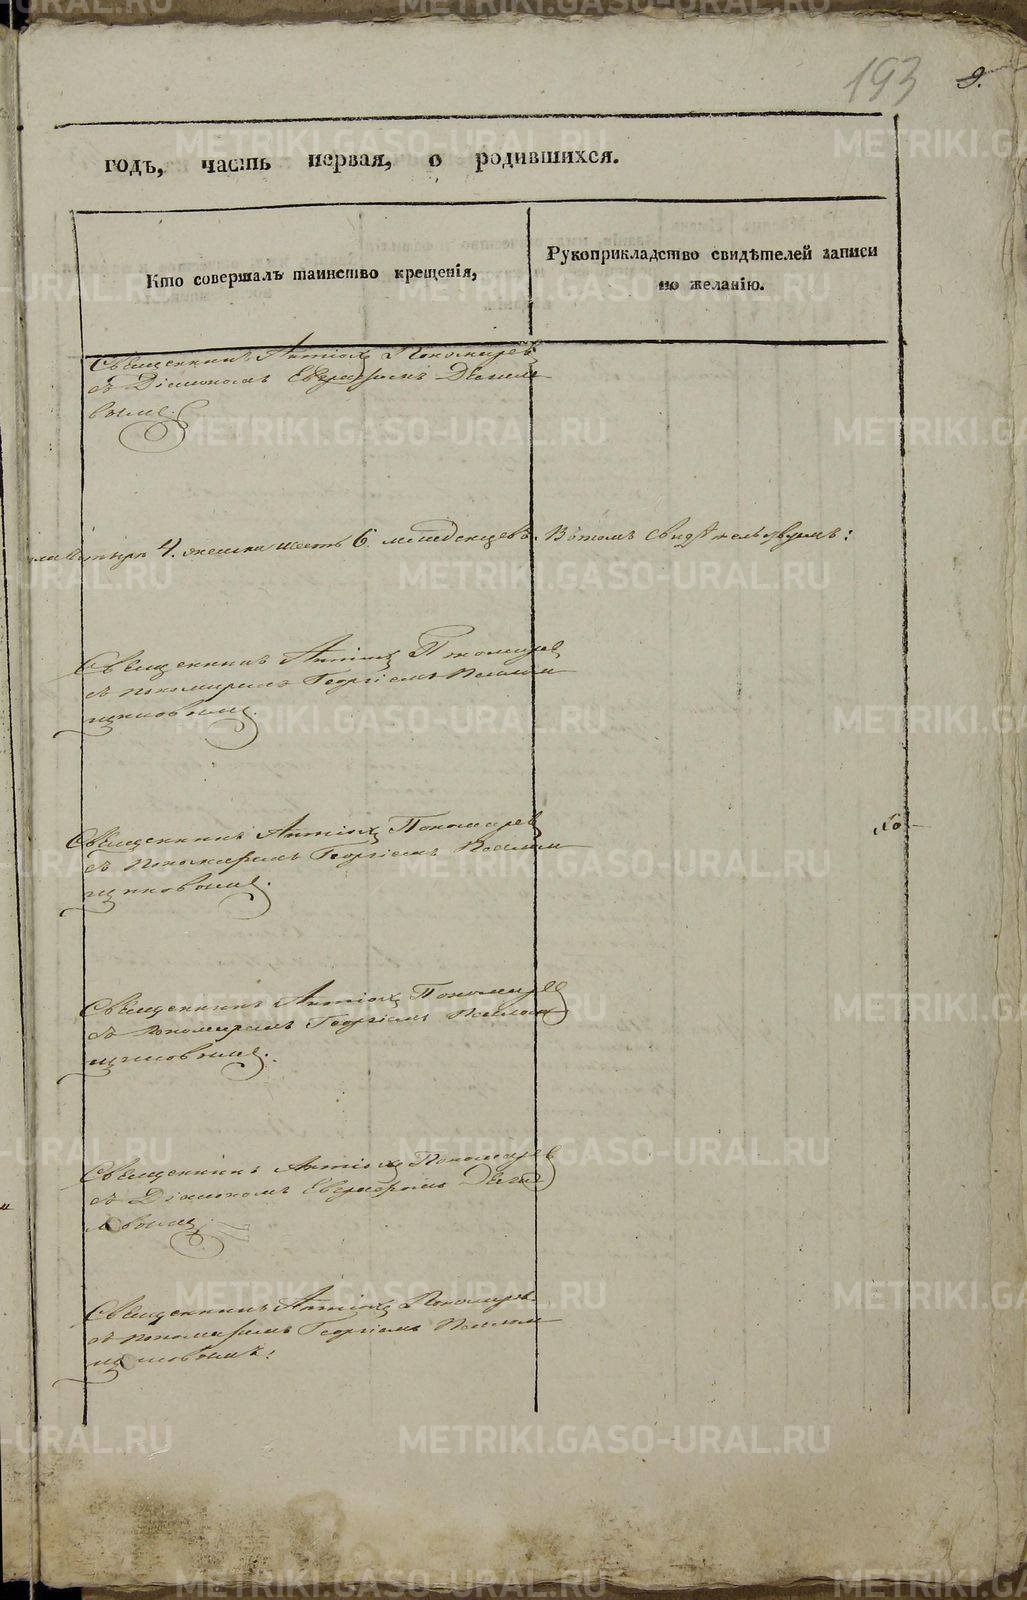 193
9.
годъ, часть первая, о родившихся.
Кто совершалъ таинство крещенія,
Рукоприкладство свидѣтелей записи
по желанію.
Священникъ Антіохъ Пономаревъ
съ Діакономъ Евграфомъ
вымъ.
4. женска шесть 6. младенцевъ. Въ томъ свидѣтельствуемъ:
Священникъ Антіохъ Пономаревъ
съ пономаремъ Георгіемъ Псалом
щиковымъ.
Священникъ Антіохъ Пономаревъ
съ Пономаремъ Георгіемъ Псалом
щиковымъ.
Священникъ Антіохъ Пономаревъ
съ Пономаремъ Георгіемъ Псалом
щиковымъ.
Священникъ Антіохъ Пономаревъ
съ Діакономъ Евграфомъ
вымъ.
Священникъ Антіохъ Пономаревъ
съ пономаремъ Георгіемъ Псалом
щиковымъ:
METRIKI.GASO-URAL.RU